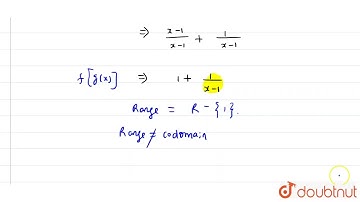 ⇒ x-1/x-1 + 1/x-1
f[g(x)] ⇒ 1 + 1/x-1
Range = R - {1}.
Range ≠ codomain
doubtnut